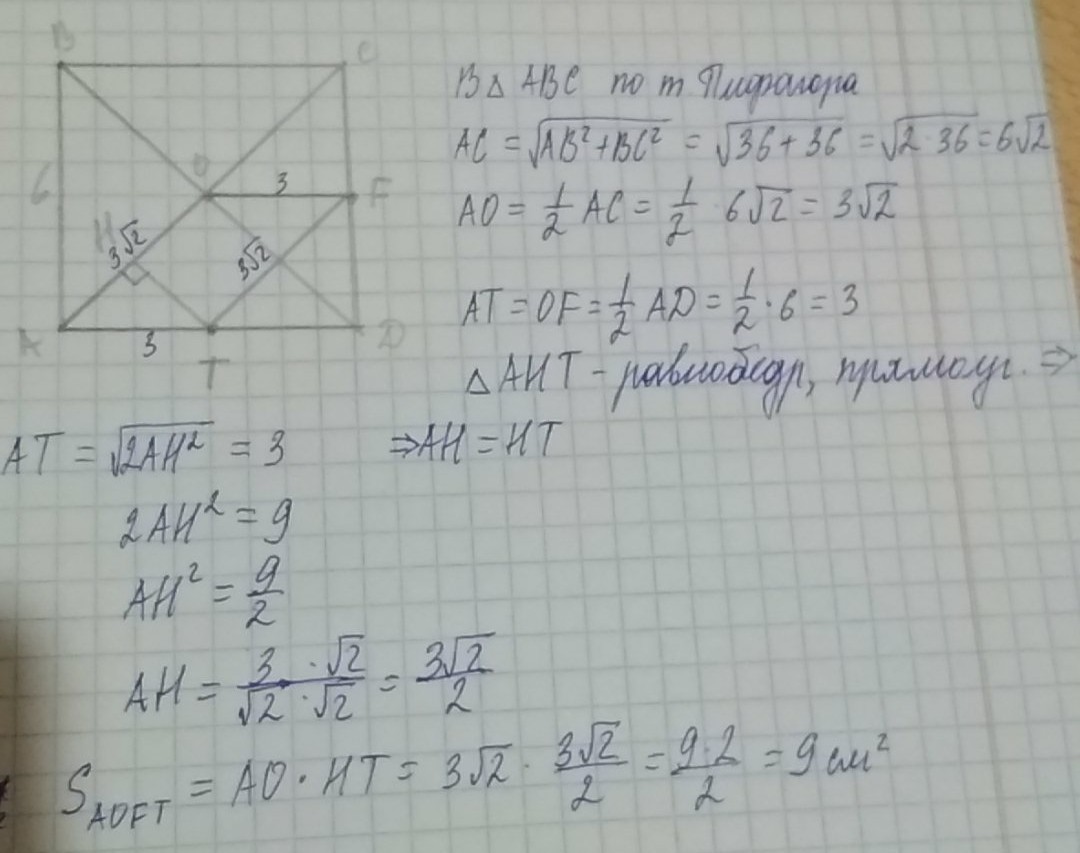 B
C
6
O
3
F
H
3√2
3√2
A
3
T
D
В △ ABC по т Пифагора
AC = √(AB² + BC²) = √(36 + 36) = √(2 · 36) = 6√2
AO = 1/2 AC = 1/2 · 6√2 = 3√2
AT = OF = 1/2 AD = 1/2 · 6 = 3
△ AHT – равнобедр, прямоуг. ⇒
AT = √(2AH²) = 3 ⇒ AH = HT
2AH² = 9
AH² = 9/2
AH = (3 · √2)/(√2 · √2) = (3√2)/2
S_AOFT = AO · HT = 3√2 · (3√2)/2 = (9 · 2)/2 = 9 см²